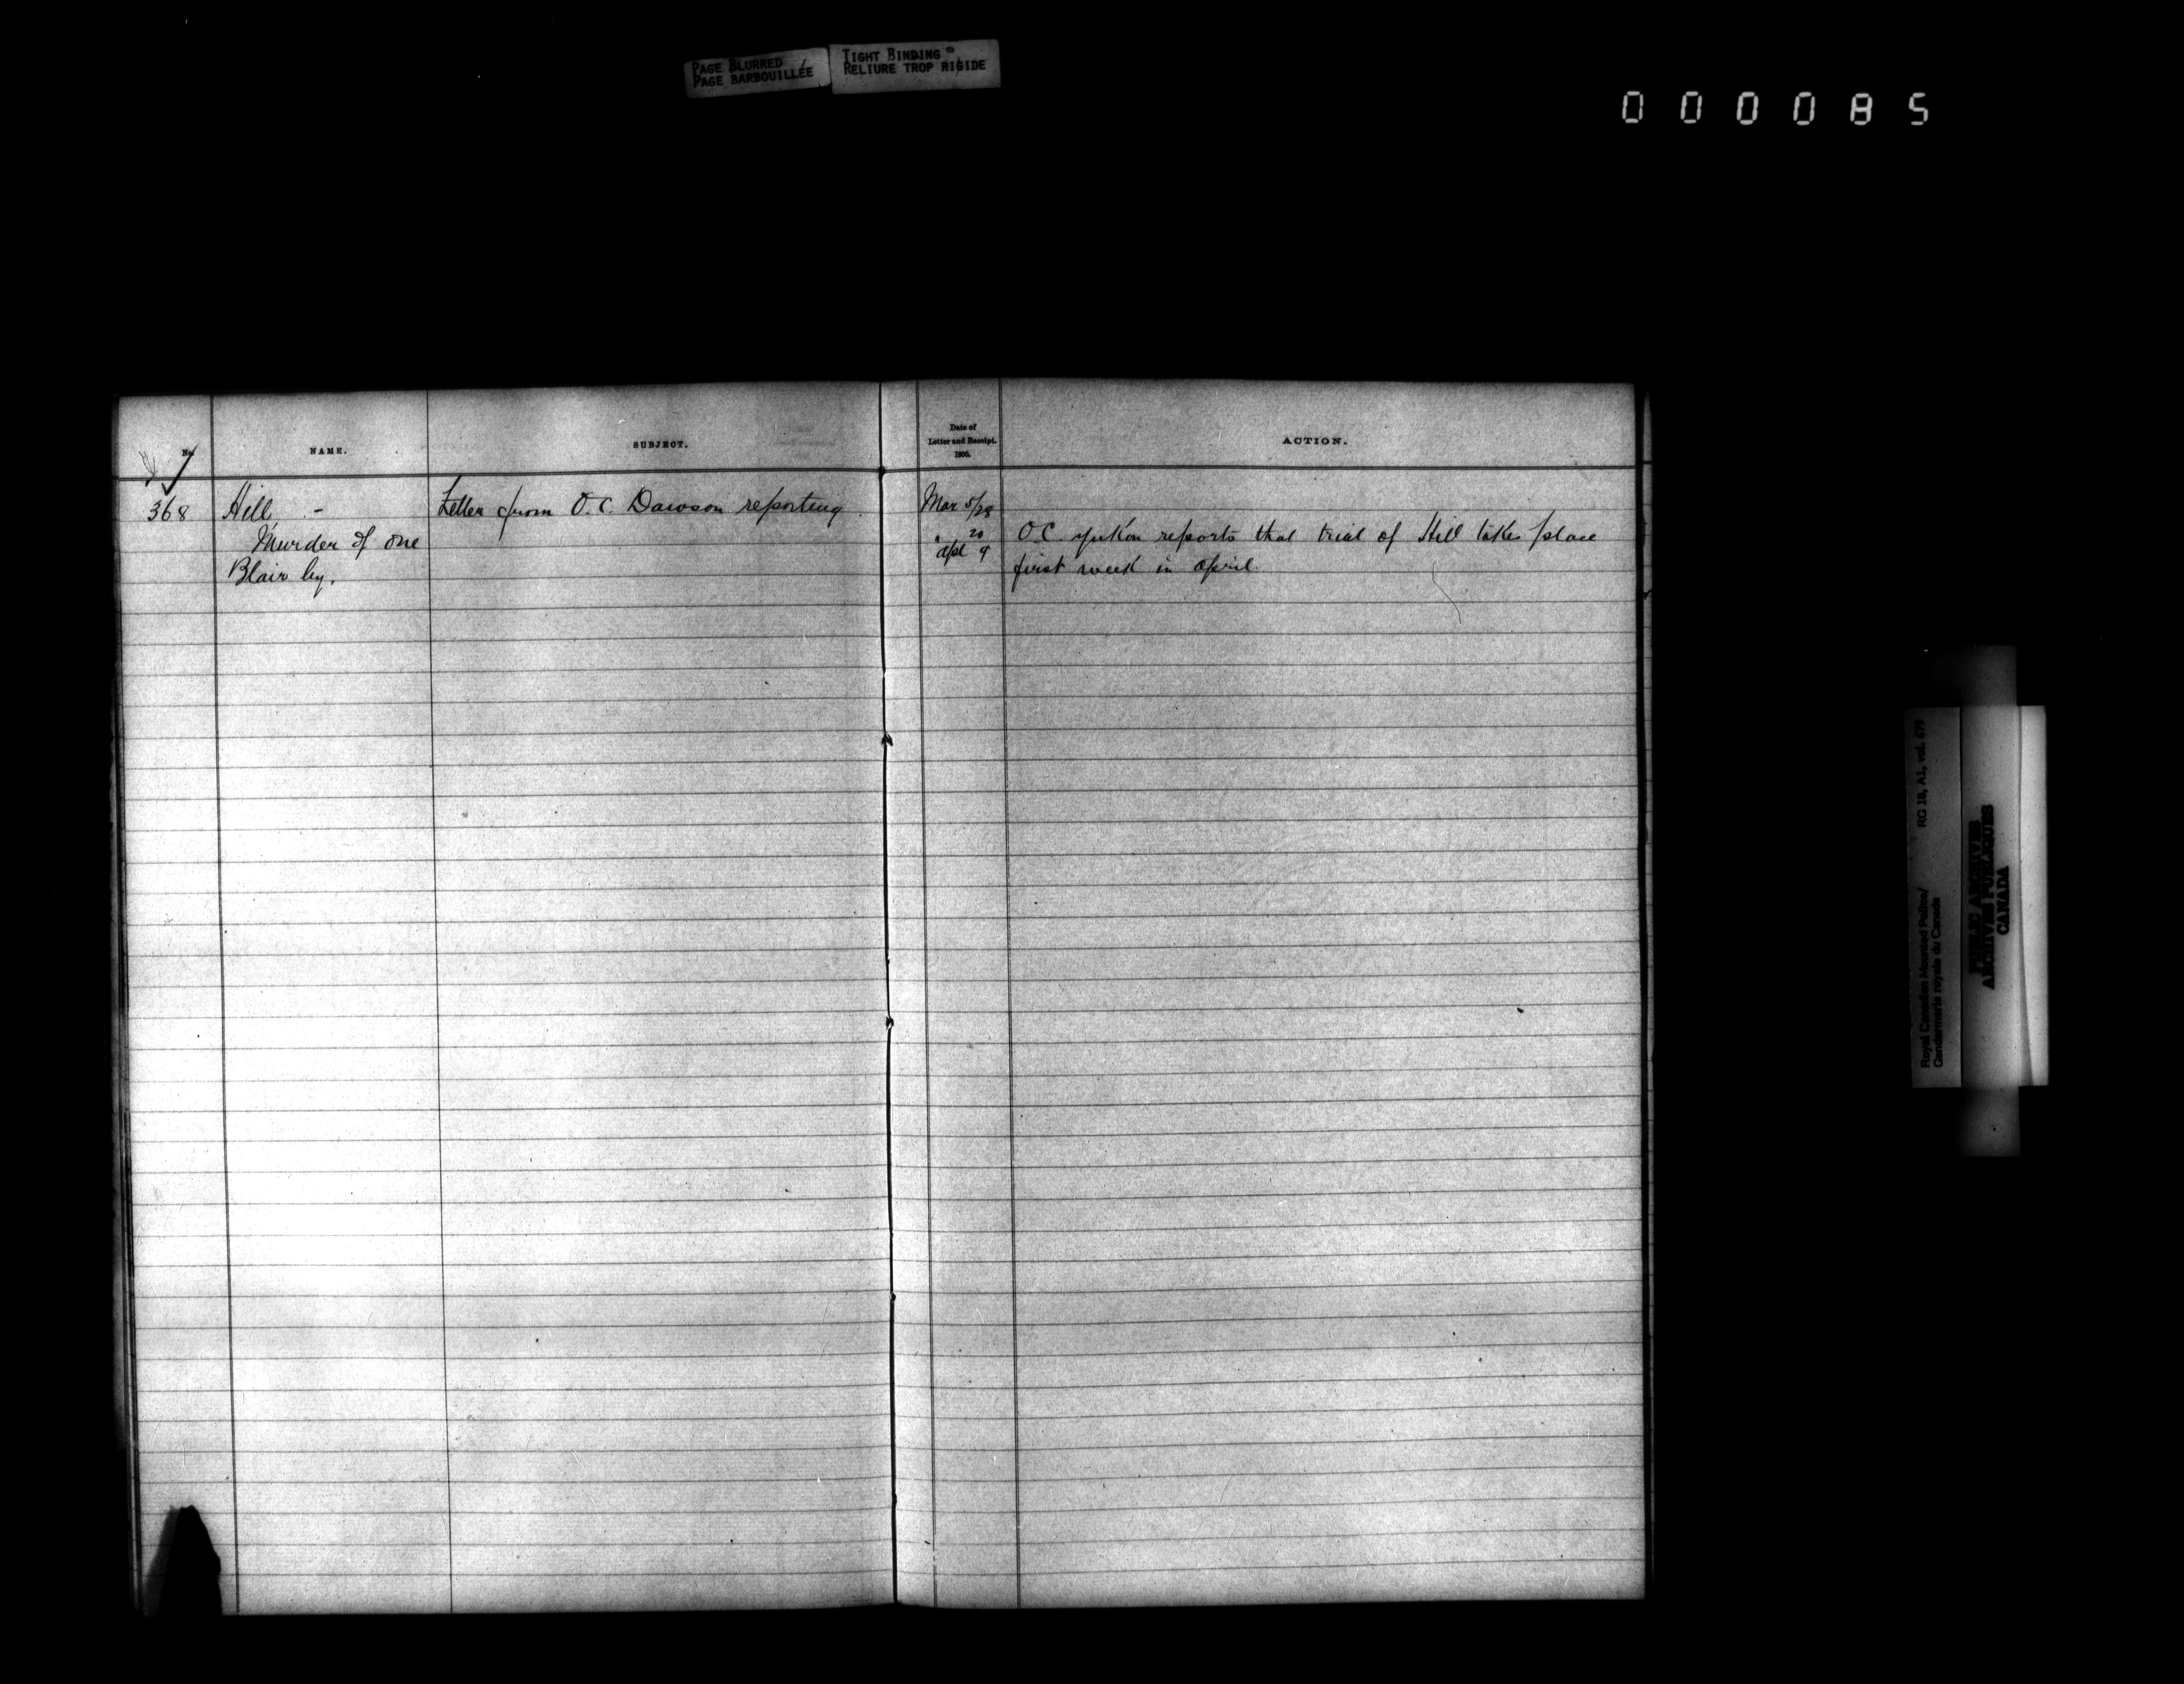 PAGE BLURRED
PAGE BARBOUILLÉE
TIGHT BINDING
RELIURE TROP RIGIDE
000085
No.
NAME.
SUBJECT.
Date of
Letter and Receipt.
1900.
ACTION.
368
Hill -
Murder of one
Blair by.
Letter from O.C. Dawson reporting.
Mar 5/28
" 20
Apl 9
O.C. Yukon reports that trial of Hill takes place
first week in April.
Royal Canadian Mounted Police/
Gendarmerie royale du Canada
RG 18, A1, vol. 679
PUBLIC ARCHIVES
ARCHIVES PUBLIQUES
CANADA